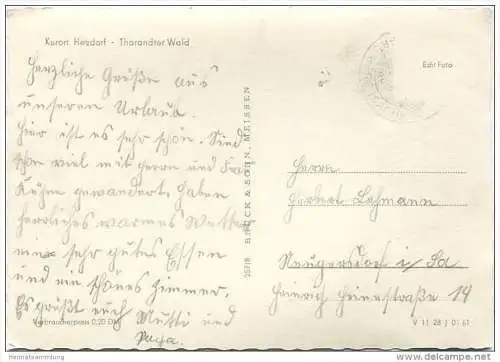 Kurort Hetzdorf - Tharandter Wald
Herzliche Grüße aus
unserem Urlaub.
Hier ist es sehr schön. Sind
schon viel mit Herrn und Frau
Kühne gewandert. Haben
herrliches warmes Wetter
ein sehr gutes Essen
und ein schönes Zimmer.
Es grüßt euch Mutti und
Papa.
Verbraucherpreis 0,20 DM
25/8 BRÜCK & SOHN, MEISSEN
Echt Foto
Herrn
Herbert Lehmann
Neugersdorf i/Sa
Heinrich Heinestraße 14
V 11 28 J 01 61